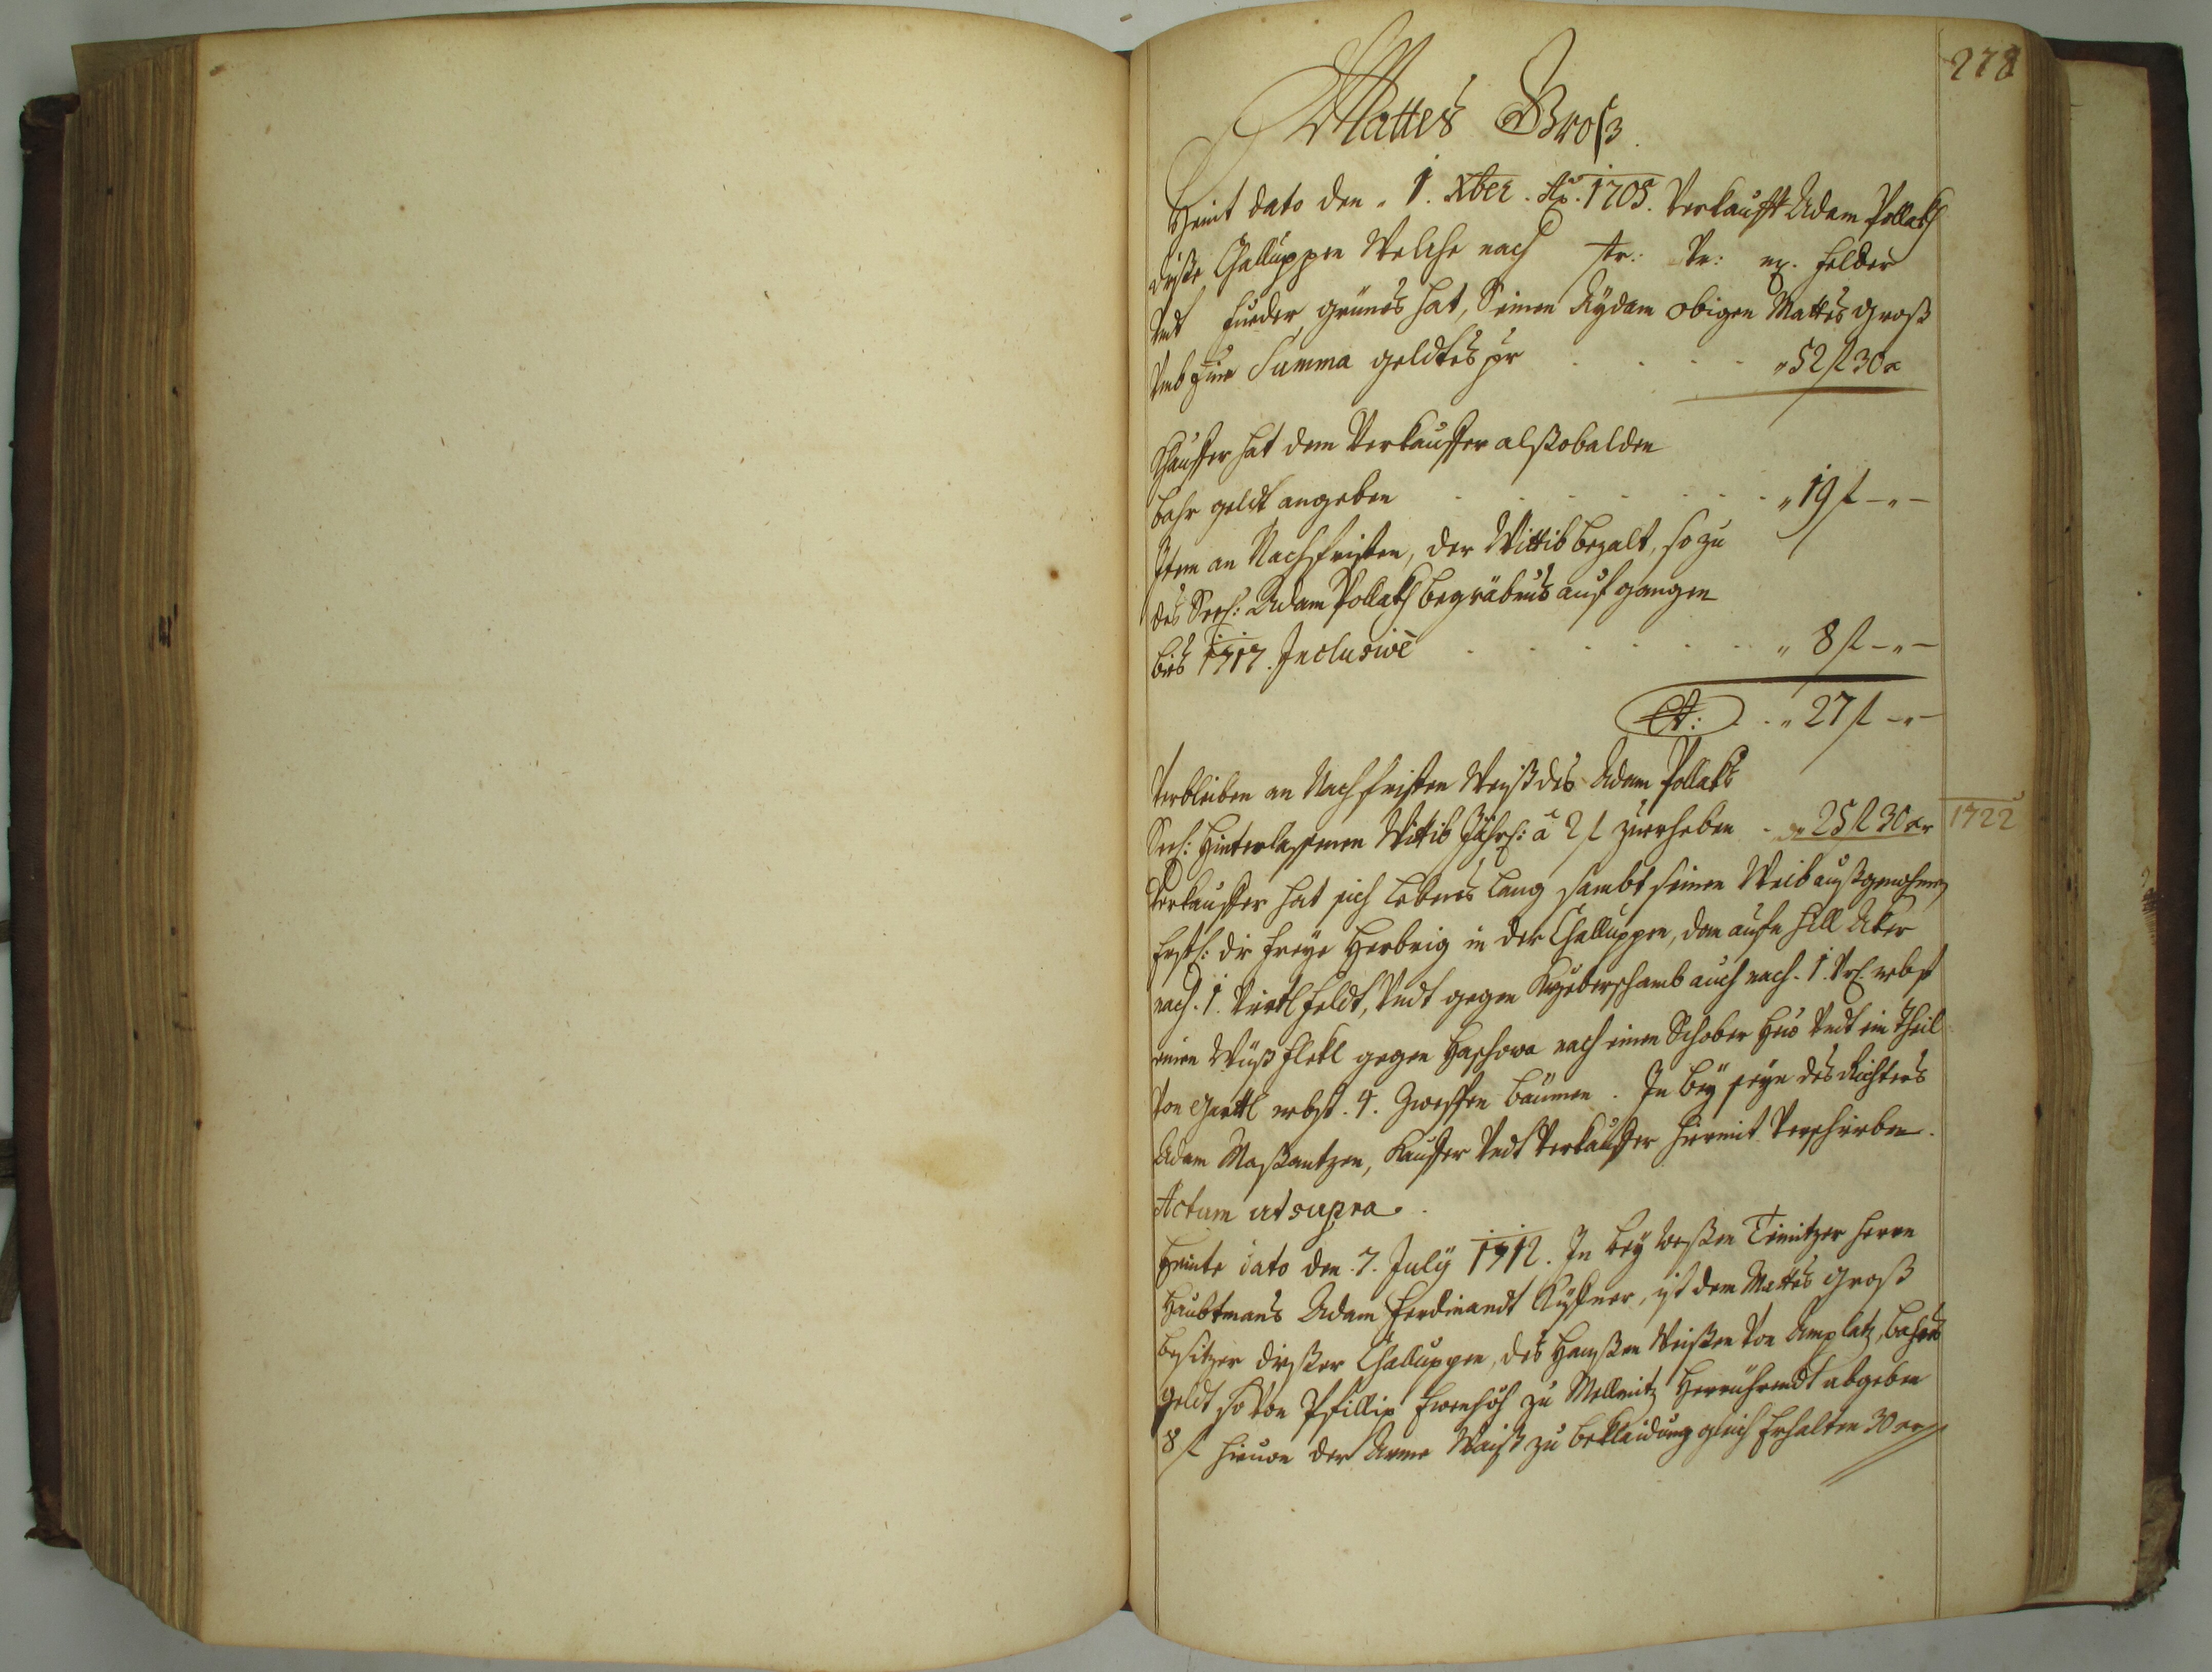 278
Mattes Groß.
Heint dato den 1. Xber. Ao. 1705. Verkaufft Adam Pollakh
diße Challuppen Welche nach Str: Vr: ng. Felder
Vndt Fueder grünes hat, Seinen Aydam obigen Mattes Groß
Vmb Eine Summa geldtes pr . . . . 52 f 30 x
Khauffer hat dem Verkauffer alßobalden
bahr geldt angeben . . . . . . 19 f — " —
Item an Nachfristen, der Wittib bezalt, so zu
des Seel: Adam Pollakh begräbnus auf gangen
bis 1717. Inclusivè . . . . . . 8 f — " —
Lt: . . 27 f — " —
Verbleiben an Nachfristen Weiß des Adam Pollaks
Seel: Hinterlassenen Wittib Jährl: à 2 f zuerheben . 25 f 30 xr 1722
Verkauffer hat sich lebens lang sambt seinen Weib außgenohmen
Erstl: die Freye Herbrig in der Challuppen, dan aufn Hill Aker
nach. 1. Viertl Feldt, Vndt gegen auch nach. 1. Vrl. nebst
einen Wüß flekl gegen Haschowa nach einen Schober Heü Vndt ein Theil
Von Gärttl nebst. 4. Zwespen bäumen. In bey seyn des Richters
Adam Maßantzen, Kauffer Vndt Verkauffer hiermit Verschriben.
Actum ut supra.
Heinte dato den. 7. July 1712. In bey weßen Teinitzer Herrn
Haubtmans Adam Ferdinandt Kystner, ist dem Mattes Groß
besitzer dißer Challuppen, des Hanßen Weißen Von Amplatz, bahres
geldt so Von Philipp zu Mellnitz Herrührendt abgeben
8 f hieuon der Arme Waiß zu bekleidung gleich Erhalten 30 xr